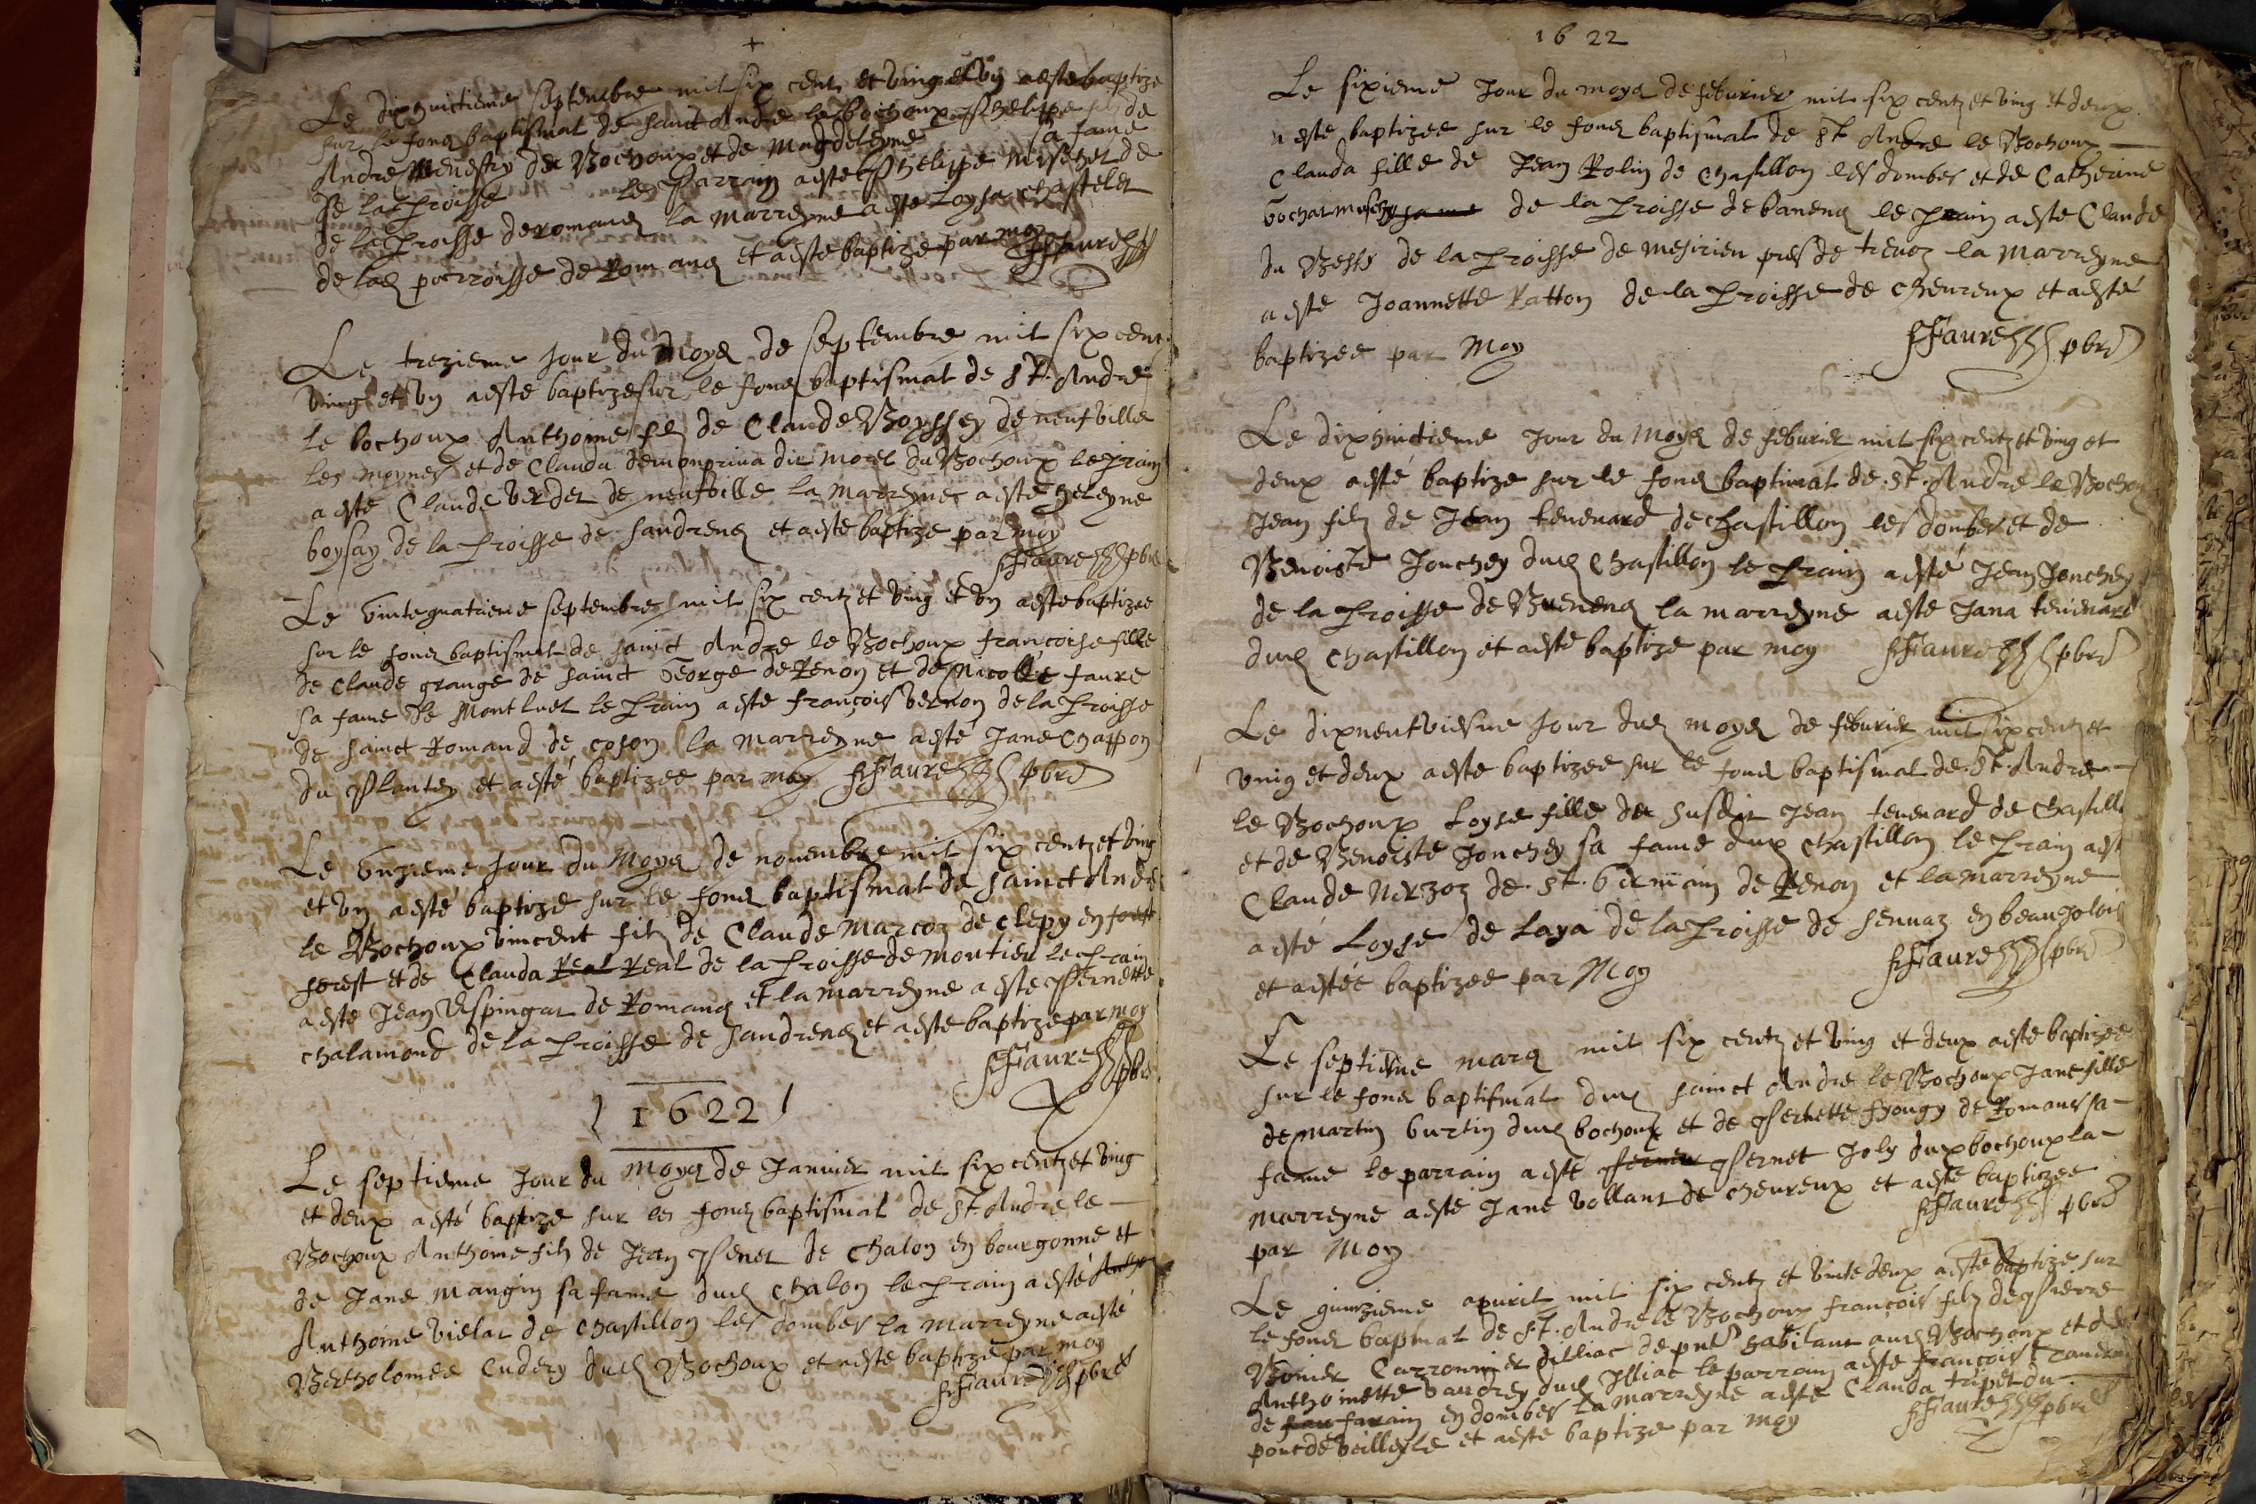 Le dixhuictieme septembre mil six centz et ving et vng aeste baptize
sur le fonds baptismal de sainct Andre le bochoux Phelippe filz de
Andre Menestry du Bochoux et de Magdeleyne sa fame
de la proisse le parrain aeste Phelippe Mischel de
de la proisse de romans la marreyne aeste Loyse Chastelet
de lad porroisse de Romans et aeste baptize par moy FFaure
Le trezieme jour du Moys de septembre mil six cent
ving et vng aeste baptize sur le fons baptismal de St. Andre
le bochoux Anthoine filz de Claude Boyssey de neufville
les moynes et de Clauda demonpriua dit Morel du Bochoux le prain
aeste Claude Verdet de neufville la marreyne aeste heleyne
boysay de la proisse de sandrens et aeste baptize par moy
FFaure pbre
Le vintequatrieme septembre mil six centz et ving et vng aeste baptizee
sur le fons baptismal de sainct Andre le Bochoux francoise fille
de Claude grange de sainct George de Renon et de Nicolle faure
sa fame de Montluel le prain aeste françois Vernon de la proisse
de sainct Romand de coson la marreyne aesté Jane Chappon
du Plantey et aesté baptizee par moy FFaure pbre
Le Unzieme jour du Moys de nouembre mil six centz et ving
et vng aesté baptize sur le fons baptismal de sainct Andre
le Bochoux vincent filz de Claude Marcoz de Clepy en forest
forest et de Clauda Real Real de la proisse de Montieu le prain
aeste Jean Espingar de Romans et la marreyne aeste Pernette
chalamond de la proisse de sandrens et aeste baptize par moy
FFaure pbre
1622
Le septieme jour du Moys de Januier mil six centz et ving
et deux aesté baptize sur les fons baptismal de St Andre le
Bochoux Anthoine filz de Jean Penet de Chalon en bourgonne et
de Jane Mangin sa fame dud Chalon le prain aesté Antho
Anthoine Vielat de Chastillon les dombes la marreyne aesté
Bertholomee Cudery dud Bochoux et aeste baptize par moy
FFaure pbre
1622
Le sixieme Jour du moys de feburier mil six centz et ving et deux
aeste baptizee sur le fons baptismal de St Andre le Bochoux
Clauda fille de Jean Rolin de Chastillon les dombes et de Catherine
sa fame de la proisse de banens le prain aeste Claude
du Bess de la proisse de mesirieu pres de treuoz la Marreyne
aeste Joannette Ratton de la proisse de Cheureux et aesté
baptizee par Moy FFaure pbre
Le dixhuictieme Jour du Moys de feburier mil six centz et ving et
deux aesté baptize sur le fons baptimal de St. Andre le Bochou
Jean filz de Jean teuenard de chastillon les dombes et de
Benoiste Jonchey dud Chastillon le prain aesté Jean Jonchey
de la proisse de Buenens la marreyne aeste Jana teuenard
dud Chastillon et aeste baptize par moy FFaure pbre
Le dixneufviesme jour dud moys de feburier mil six centz et
ving et deux aeste baptizee sur le fons baptismal de St. Andre
le Bochoux Loyse fille du susdit Jean teuenard de Chastillo
et de Benoiste Jonchey sa fame dud Chastillon le prain aest
Claude Nerzoz de St. Germain de Renon et la marreyne
aesté Loyse de Laya de la proisse de sennaz en beaugolois
et aestée baptizee par Moy FFaure pbre
Le septiesme mars mil six centz et ving et deux aeste baptizee
sur le fons baptismal dud sainct Andre le Bochoux Jane fille
de Martin Gurtin dud bochoux et de Pernette fyongy de Romans sa
fame le parrain aesté Pernet Pernet Joly dud bochoux la
Marreyne aeste Jane vollant de cheureux et aeste baptizee
par Moy FFaure pbre
Le quinzieme apuril mil six centz et vinte deux aeste baptize sur
le fons bapmal de St. Andre le Bochoux françois filz de Pierre
Bonier Carronnier dilliac de pnt habitant aud Bochoux et de
Anthoinette Vaudrey dud Jlliac le parrain aeste françois
de farain en dombes la marreyne aeste Clauda tripet du
pont de veilleyle et aeste baptize par moy FFaure pbre